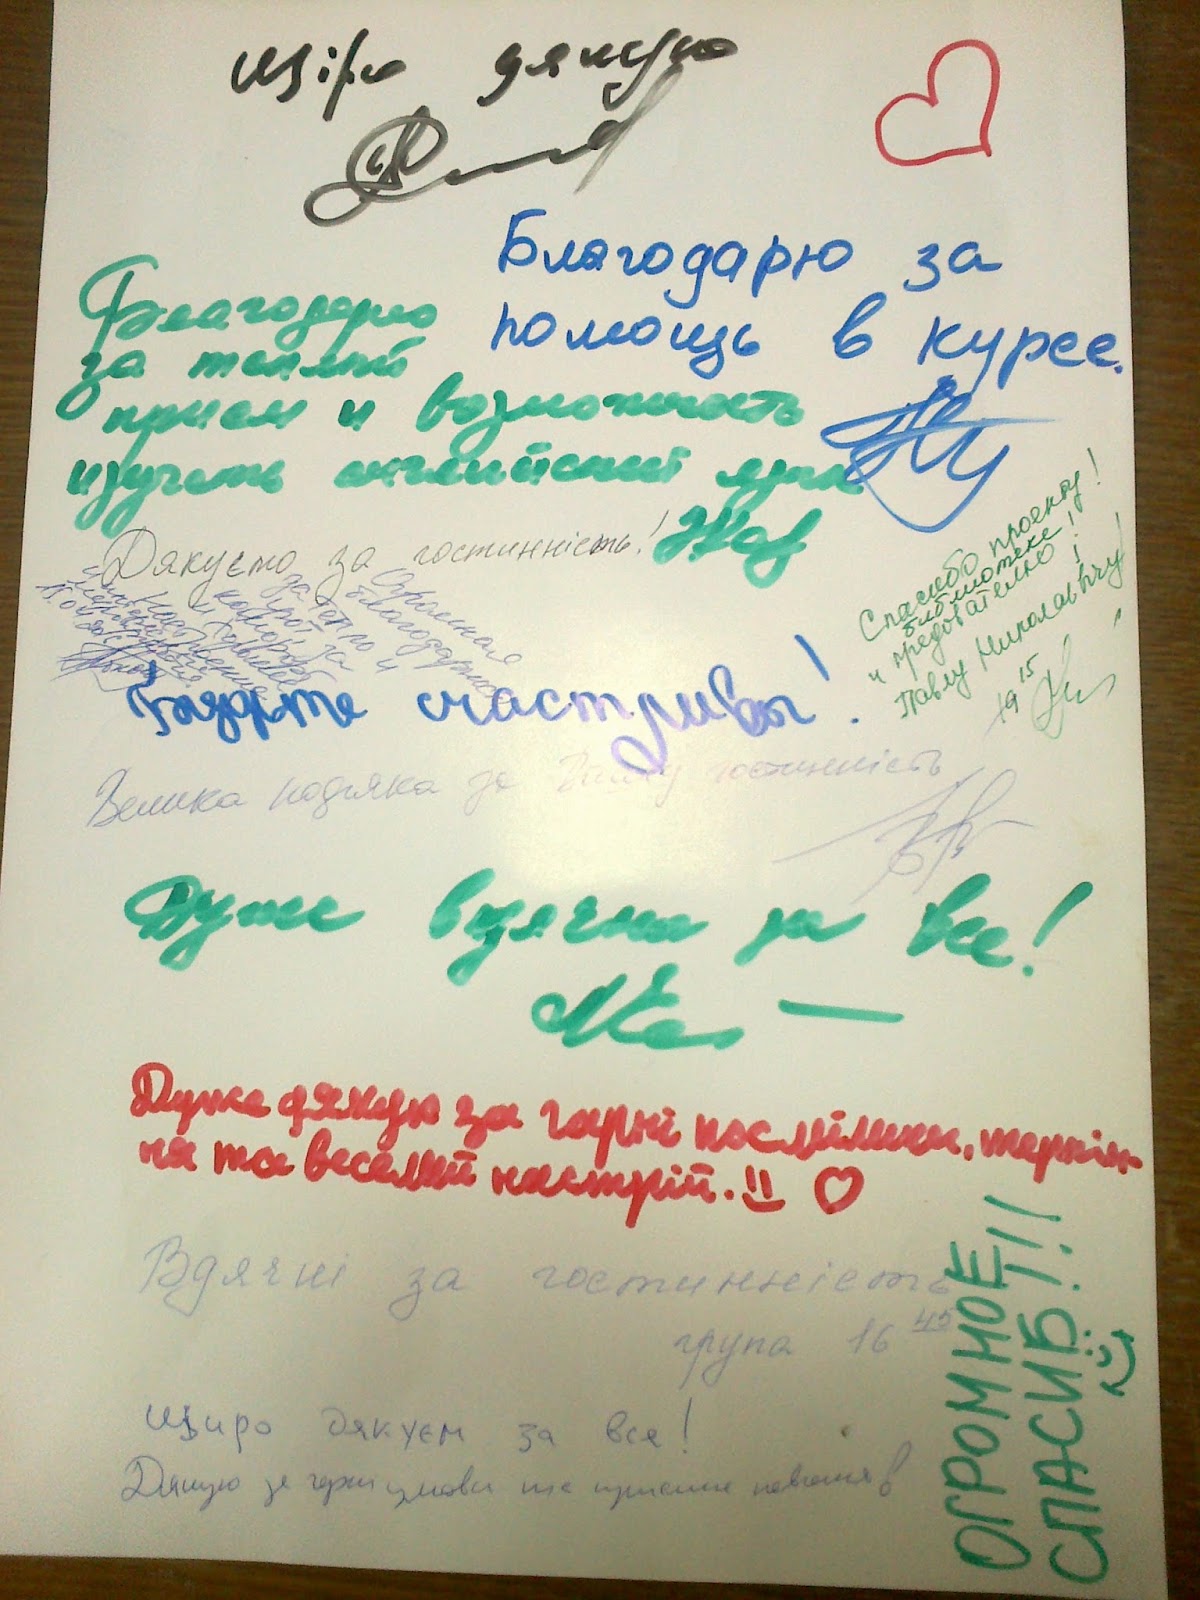 щіро дякую
Благодарю за
помощь в курсе.
Благодарю
за теплый
прием и возможность
изучать английский язык
Дякуємо за гостинність!
Огромная
благодарность
за тепло и
Спасибо проекту!
библиотеке!
и предователю!
Павлу Николаевичу!
19 15
Будьте счастливы!
Велика подяка за Вашу гостинність
Дуже вдячна за все!
Дуже дякую за гарні посмішки, терпін-
ня та веселий настрій.
Вдячні за гостинність
група 16 45
Щиро дякуєм за все!
Дякую за гарні умови та
ОГРОМНОЕ
СПАСИБ!!!